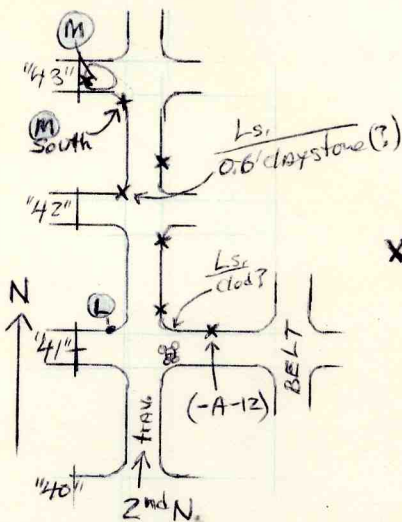 M
"43"
M
South
Ls.
0.6' claystone (?)
"42"
X
Ls.
clod?
N
L
"41"
(-A-12)
BELT
trav.
"40"
2nd N.